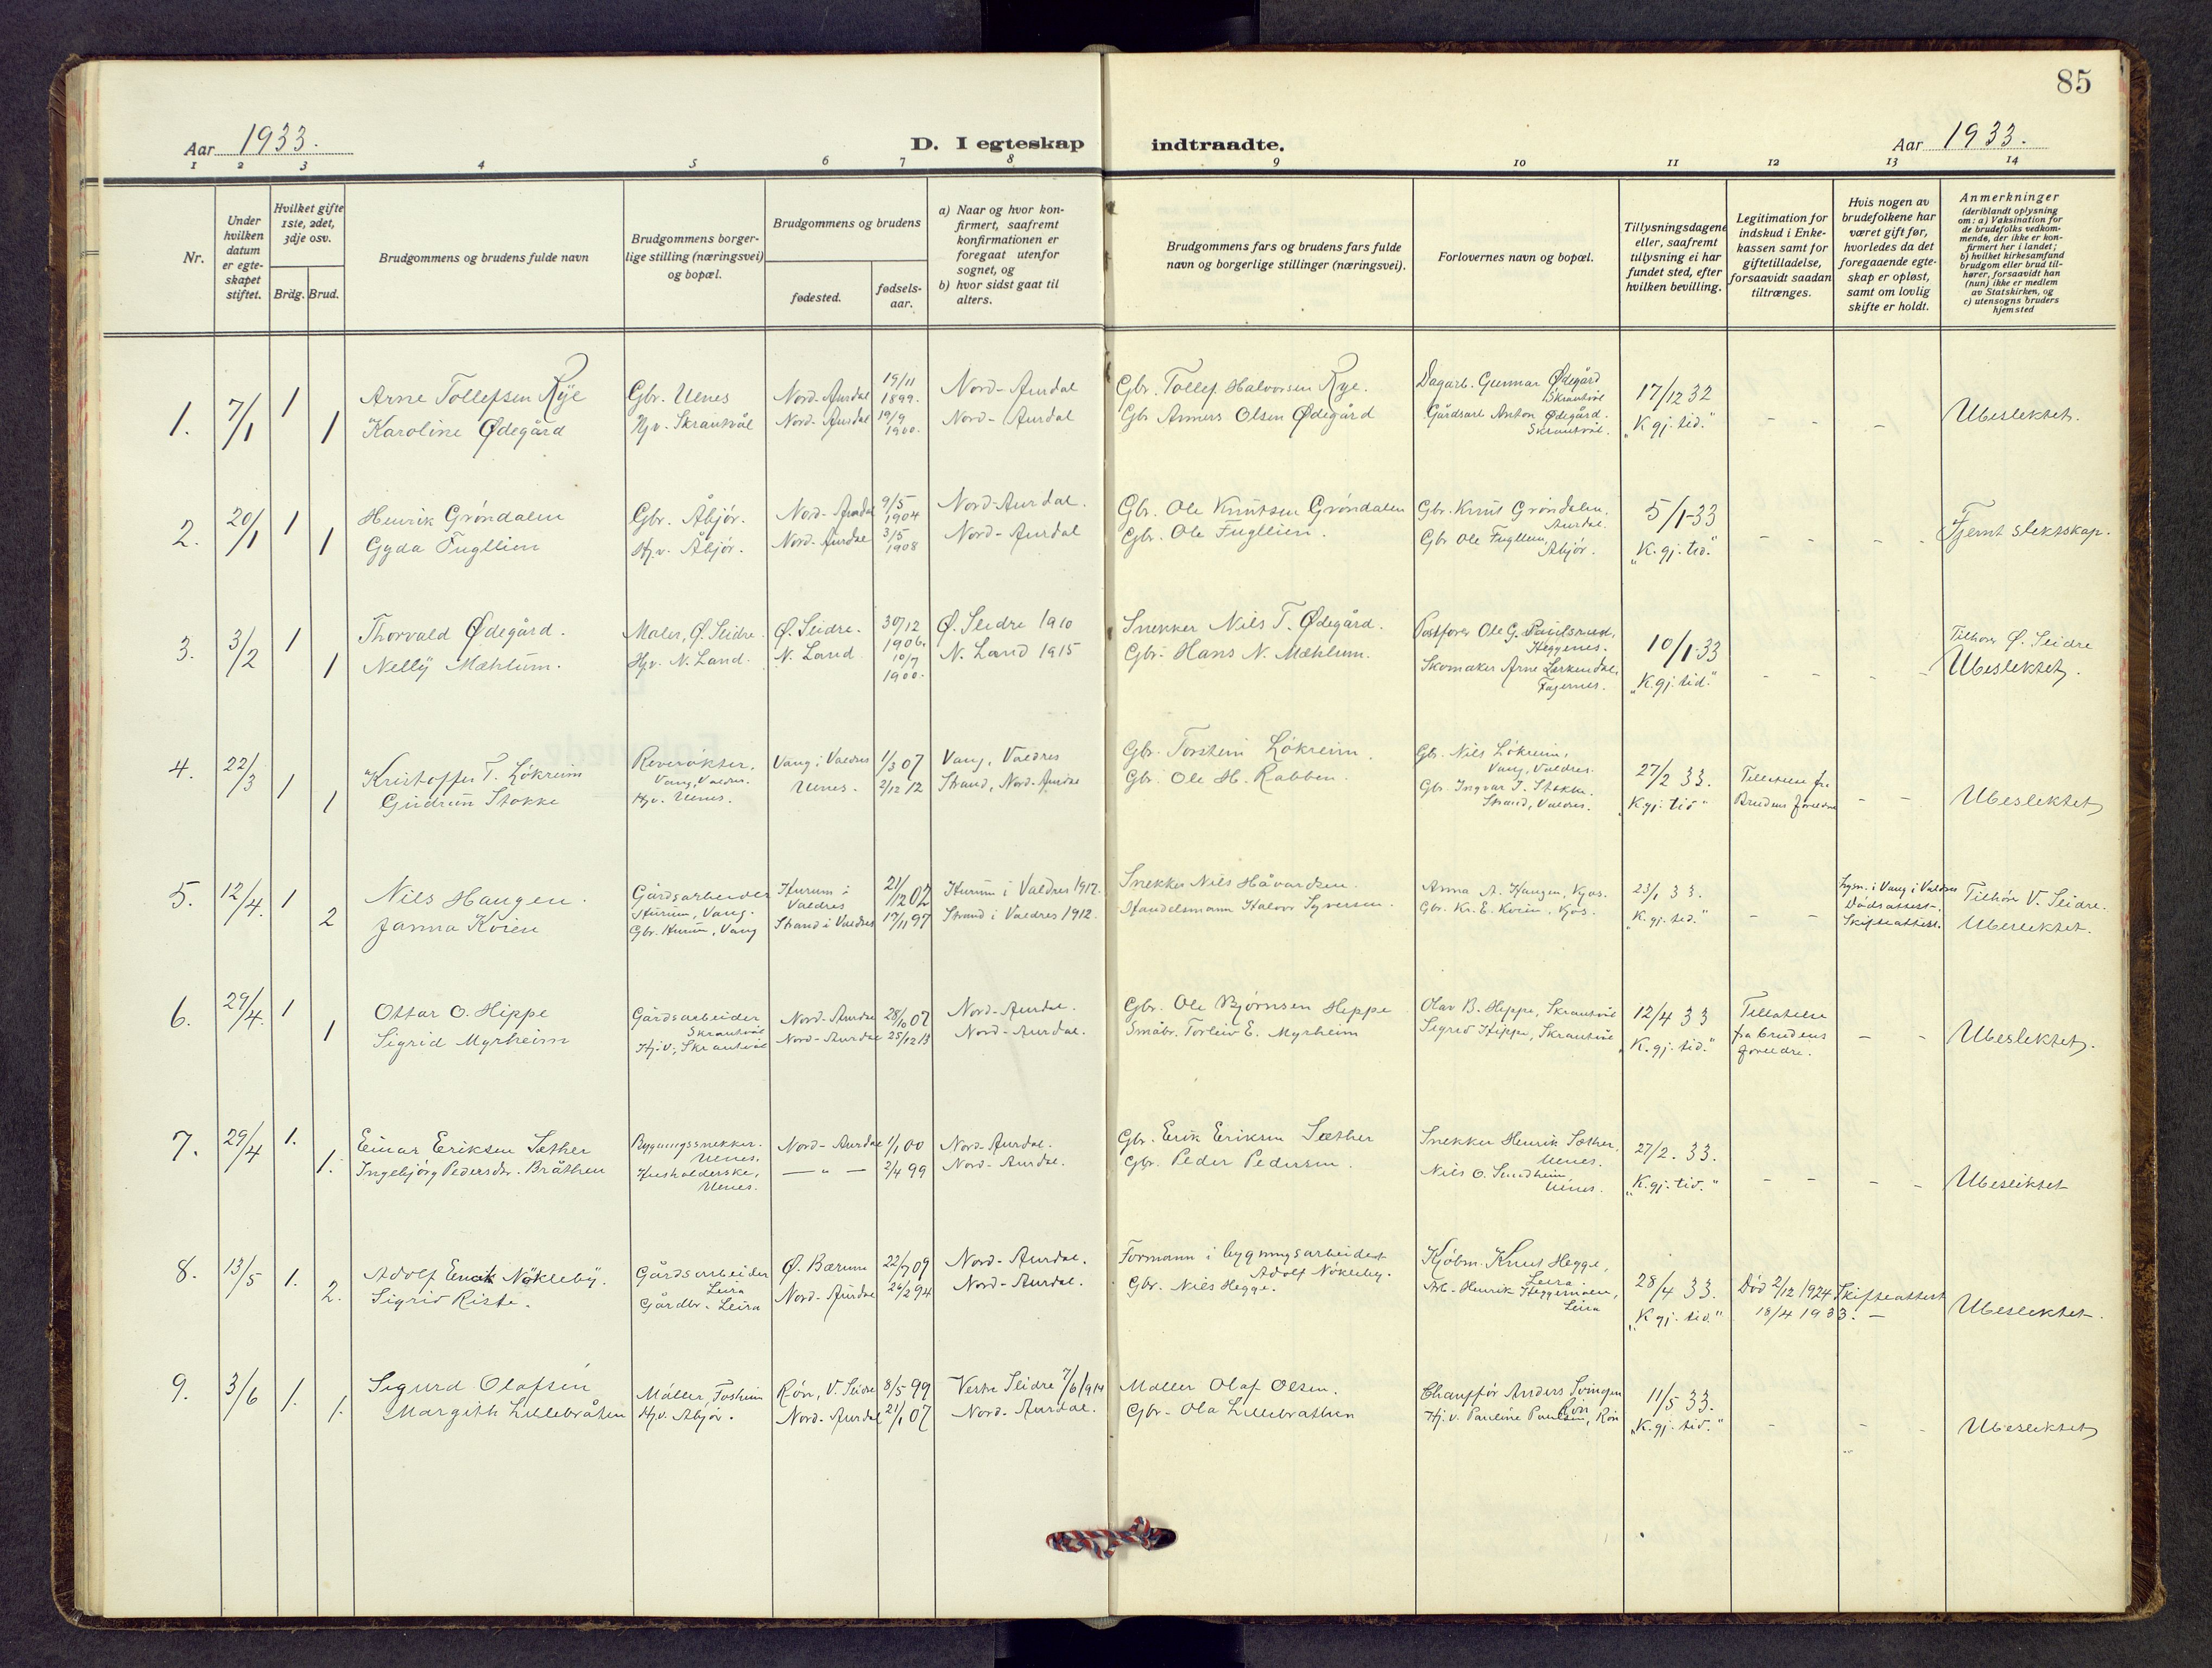 85
Aar 1933.
D. I egteskap indtraadte.
Aar 1933.
1 2 3 4 5 6 7 8 9 10 11 12 13 14
Nr.
Under hvilken datum er egteskapet stiftet.
Hvilket gifte 1ste, 2det, 3dje osv.
Brdg. Brud.
Brudgommens og brudens fulde navn
Brudgommens borgerlige stilling (næringsvei) og bopæl.
Brudgommens og brudens
fødested.
fødselsaar.
a) Naar og hvor konfirmert, saafremt konfirmationen er foregaat utenfor sognet, og
b) hvor sidst gaat til alters.
Brudgommens fars og brudens fars fulde navn og borgerlige stillinger (næringsvei).
Forlovernes navn og bopæl.
Tillysningsdagene eller, saafremt tillysning ei har fundet sted, efter hvilken bevilling.
Legitimation for indskud i Enkekassen samt for giftetilladelse, forsaavidt saadan tiltrænges.
Hvis nogen av brudefolkene har været gift før, hvorledes da det foregaaende egteskap er opløst, samt om lovlig skifte er holdt.
Anmerkninger
(deriblandt oplysning om: a) Vaksination for de brudefolks vedkommende, der ikke er konfirmert her i landet; b) hvilket kirkesamfund brudgom eller brud tilhører, forsaavidt han (hun) ikke er medlem av Statskirken, og c) utensogns bruders hjemsted
1. 7/1 1 Arne Tollefsen Rye Gbr. Ulnes Nord-Aurdal 19/11 1899. Nord-Aurdal Gbr. Tollef Halvorsen Rye. Dagarb. Gunnar Ødegård Skrautvål 17/12 32
1 Karoline Ødegård Hjv. Skrautvål Nord-Aurdal 19/9 1900. Nord-Aurdal Gbr Anders Olsen Ødegård Gårdsarb Anton Ødegård. Skrautvål. "K gj. tid." - - - Ubeslektet.
2. 20/1 1 Henrik Grøndalen Gbr. Åbjør. Nord-Aurdal 9/5 1904 Nord-Aurdal. Gbr. Ole Knutsen Grøndalen Gbr. Knut Grøndalen, Aurdal. 5/1-33
1 Gyda Fugllien Hj.v. Åbjør. Nord-Aurdal 3/5 1908 Nord-Aurdal Gbr. Ole Fugllien. Gbr Ole Fugllien, Åbjør. "K. gj. tid." - - - - Fjernt slektskap.
3. 3/2 1 Thorvald Ødegård. Maler, Ø. Slidre. Ø. Slidre. 30/12 1906. Ø. Slidre 1910 Snekker Nils T. Ødegård. Postfører Ole G. Paulsrud, Heggenes. 10/1-33 Tilhører Ø. Slidre
1 Nelly Mæhlum. Hjv. N. Land. N. Land 10/7 1900. N. Land 1915 Gbr. Hans N. Mæhlum. Skomaker Arne Lerkendal, Fagernes. "K. gj. tid." - - - - Ubeslektet.
4. 22/3 1 Kristoffer T. Løkreim Reverøkter, Vang, Valdres. Vang i Valdres 1/3 07 Vang, Valdres Gbr. Torstein Løkreim Gbr. Nils Løkreim, Vang, Valdres. 27/2 33.
1 Gudrun Stokke Hjv. Ulnes. Ulnes. 2/12 12 Strand, Nord-Aurdal Gbr. Ole H. Rabben. Gbr. Ingvar I. Stokke. Strand, Valdres. "K gj. tid" Tillatelse fra Brudens foreldre - - Ubeslektet
5. 12/4. 1 Nils Haugen. Gårdsarbeider Hurum, Vang. Hurum i Valdres 21/12 02 Hurum i Valdres 1917. Snekker Nils Håvardsen. Anna A. Haugen, Kjos. 23/1 33. Lysn. i Vang i Valdres Tilhør V. Slidre.
2 Janna Kvien Gbr. Hurum, Vang Strand i Valdres 17/11 97 Strand i Valdres 1912. Handelsmann Halvor Syversen. Gbr. Kr. E. Kvien, Kjos. "K. gj. tid." - - Dødsattest. Skifteattest. Ubeslektet.
6. 29/4. 1 Ottar O. Hippe Gårdsarbeider Skrautvål Nord-Aurdal 28/10 07 Nord-Aurdal. Gbr. Ole Bjørnsen Heppe Olav B. Heppe, Skrautvål 12/4 33 Tillatelse
1 Sigrid Myrheim Hj.v., Skrautvål Nord-Aurdal 25/12 13 Nord-Aurdal. Småbr. Torleiv E. Myrheim Sigrid Hippe, Skrautvål "K. gj. tid." fra brudens foreldre. - - Ubeslektet.
7. 29/4 1. Einar Eriksen Sæther Bygningssnekker. Ulnes. Nord-Aurdal 1/1 00 Nord-Aurdal. Gbr. Erik Eriksen Sæther Snekker Henrik Sæther, Ulnes. 27/2. 33.
1. Ingebjørg Pedersdr. Bråthen Husholderske, Ulnes. — " — 2/4 99 Nord-Aurdal. Gbr. Peder Pedersen. Nils O. Sundheim Ulnes. "K. gj. tid." - - - - Ubeslektet
8. 13/5 1. Adolf Nøkleby. Gårdsarbeider Leira Ø. Bærum 22/7 09 Nord-Aurdal. Formann i bygningsarbeidet Adolf Nøkleby. Kjøbm. Knut Hegge, Leira. 28/4 33.
2. Sigrid Riste. Gårdbr. Leira Nord-Aurdal 26/2 94 Nord-Aurdal. Gbr. Niels Hegge. Arb. Henrik Heggemoen, Leira "K gj. tid." Død 2/12 1924 Skifteattest 18/4 1933. — Ubeslektet.
9. 3/6 1. Sigurd Olafsen Møller, Fosheim Røn, V. Slidre 8/5 99 Vestre Slidre 7/6 1914 Møller Olaf Olsen. Chauffør Anders Svingen Røn 11/5 33.
1. Margith Lillebråten Hj.v. Åbjør. Nord-Aurdal 21/1 07 Nord-Aurdal. Gbr. Ola Lillebråthen Hj. v. Pauline Paulsen, Røn "K. gj. tid." - - - Ubeslektet